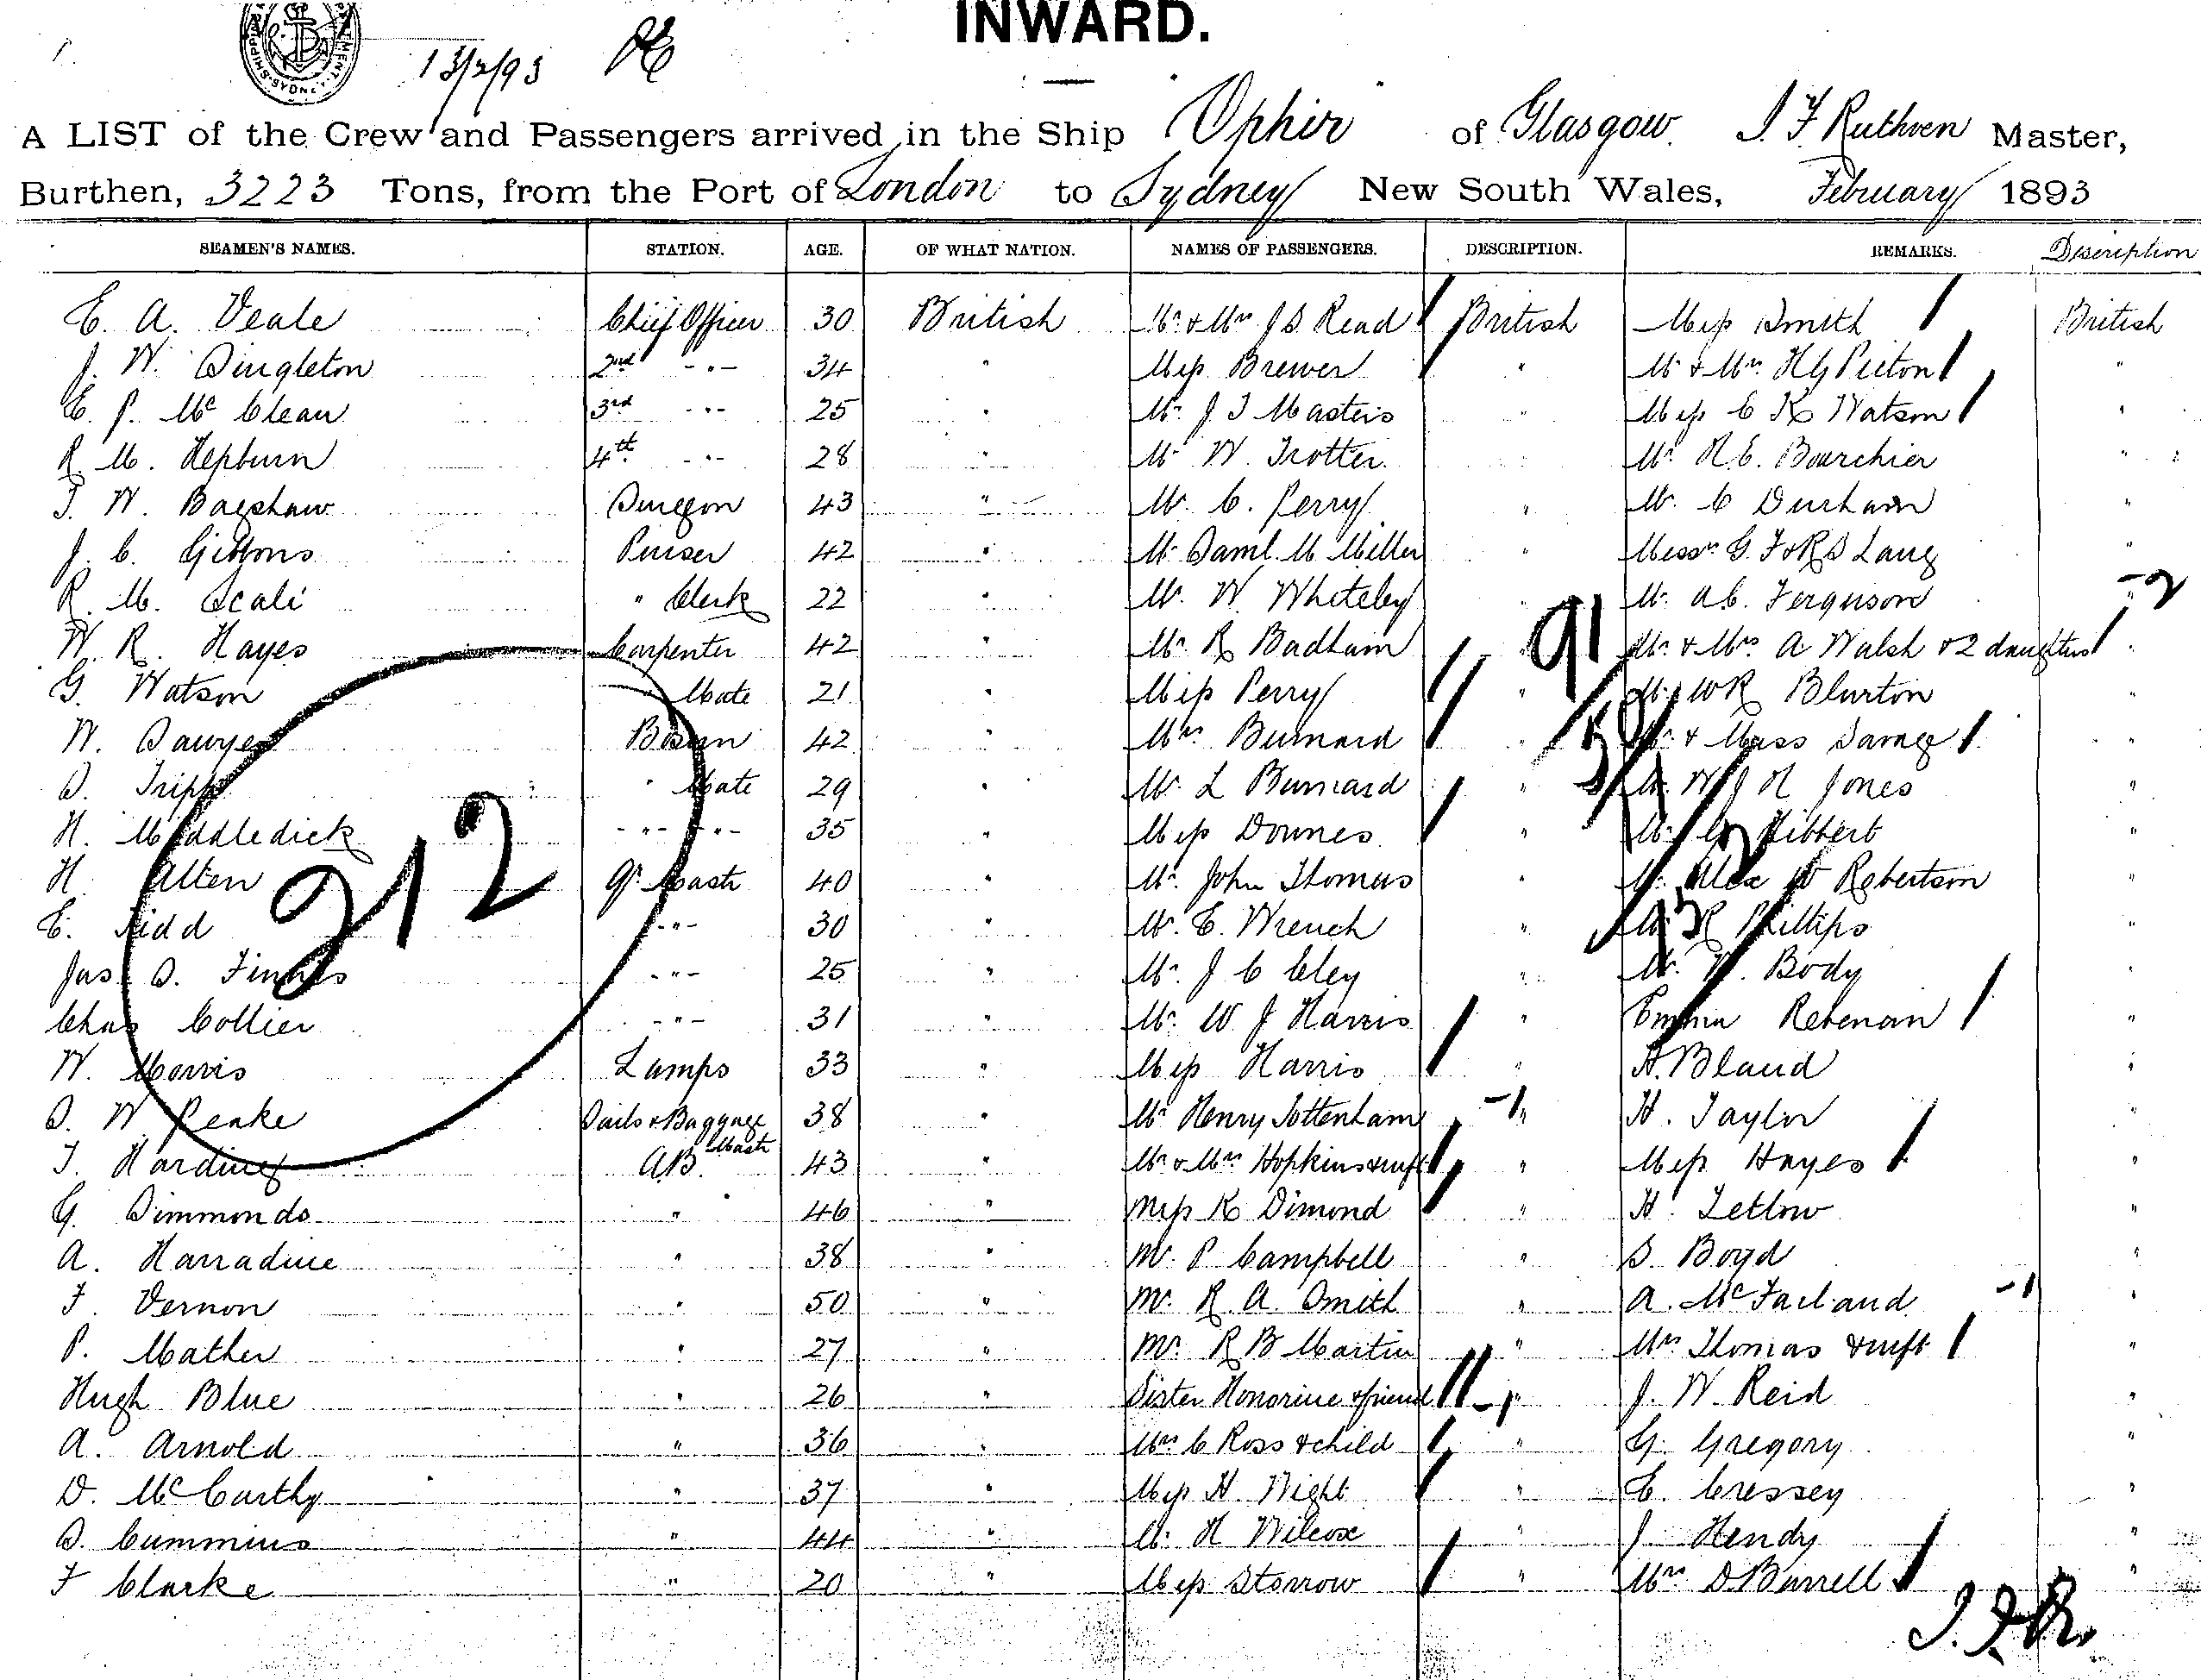 INWARD.
13/2/93
A LIST of the Crew and Passengers arrived in the Ship Ophir of Glasgow. J F Ruthven Master,
Burthen, 3223 Tons, from the Port of London to Sydney New South Wales, February 1893
SEAMEN'S NAMES. STATION. AGE. OF WHAT NATION. NAMES OF PASSENGERS. DESCRIPTION. REMARKS. Description
E. A. Veale Chief Officer 30 British Mr & Mrs J S. Read British Miss Smith British
J. W. Singleton 2nd -"- 34 " Miss Brewer " Mr & Mrs H G Picton "
E. P. Mc Clean 3rd -"- 25 " Mr J T Masters " Miss E K Watson "
R. M. Hepburn 4th -"- 28 " Mr W. Trotter " Mr. R. E. Bourchier "
T. W. Bagshaw Surgeon 43 " Mr. C. Perry " Mr. C Durham "
J. C. Gibbons Purser 42 " Mr Saml. M Miller " Messrs G. F & R S Lang "
R. M. Scale " Clerk 22 " Mr. W. Whiteley " Mr. A C. Ferguson " -2
W. R. Hayes Carpenter 42 " Mr R Badham " 91 Mr & Mrs A Walsh & 2 daughters "
G. Watson " Mate 21 " Miss Perry " Mr W R Blurton "
W. Sawyer Bosun 42 " Mrs Burnard " & Mass Savage "
S. Tripp " Mate 29 " Mr. L Burnard " Mr. W J H Jones "
H. Middledick -"- -"- 35 " Miss Downes " Mr Hibbert "
H. Alten Qr Mastr 40 " Mr. John Thomas " Mr. Alex W Robertson "
212
E. Kidd -"- 30 " Mr. E. Wrench " Mr R Phillips "
Jas. S. -"- 25 " Mr. J C Cley " Mr. W. Body "
Chas Collier -"- 31 " Mr. W J Harris " Emma "
W. Morris Lamps 33 " Miss Harris " A. Bland "
S. W Peake Sails & Baggage Mastr 38 " Mr Henry Tottenham -1 " H. Taylor "
T. Harding A.B. 43 " Mr & Mrs Hopkins & inft " Miss Hayes "
G. Simmonds " 46 " Miss K Dimond " H. Tetlow "
A. Harradine " 38 " Mr. P Campbell " S. Boyd "
F. Vernon " 50 " Mr. R. A. Smith " A. McFarland -1 "
P. Mather " 27 " Mr. R B Martin " Mrs Thomas & inft "
Hugh Blue " 26 " Sister Honorine & friend -1 " J. W. Reid "
A. Arnold " 36 " Mrs C Ross & child " G. Gregory "
D. McCarthy " 37 " Miss H. Wight " E. Cressey "
S. Cummins " 44 " Mr. H Wilcox " J. Hendy "
F Clarke " 20 " Miss Storrow " Mrs D Burrell "
J. F. R.